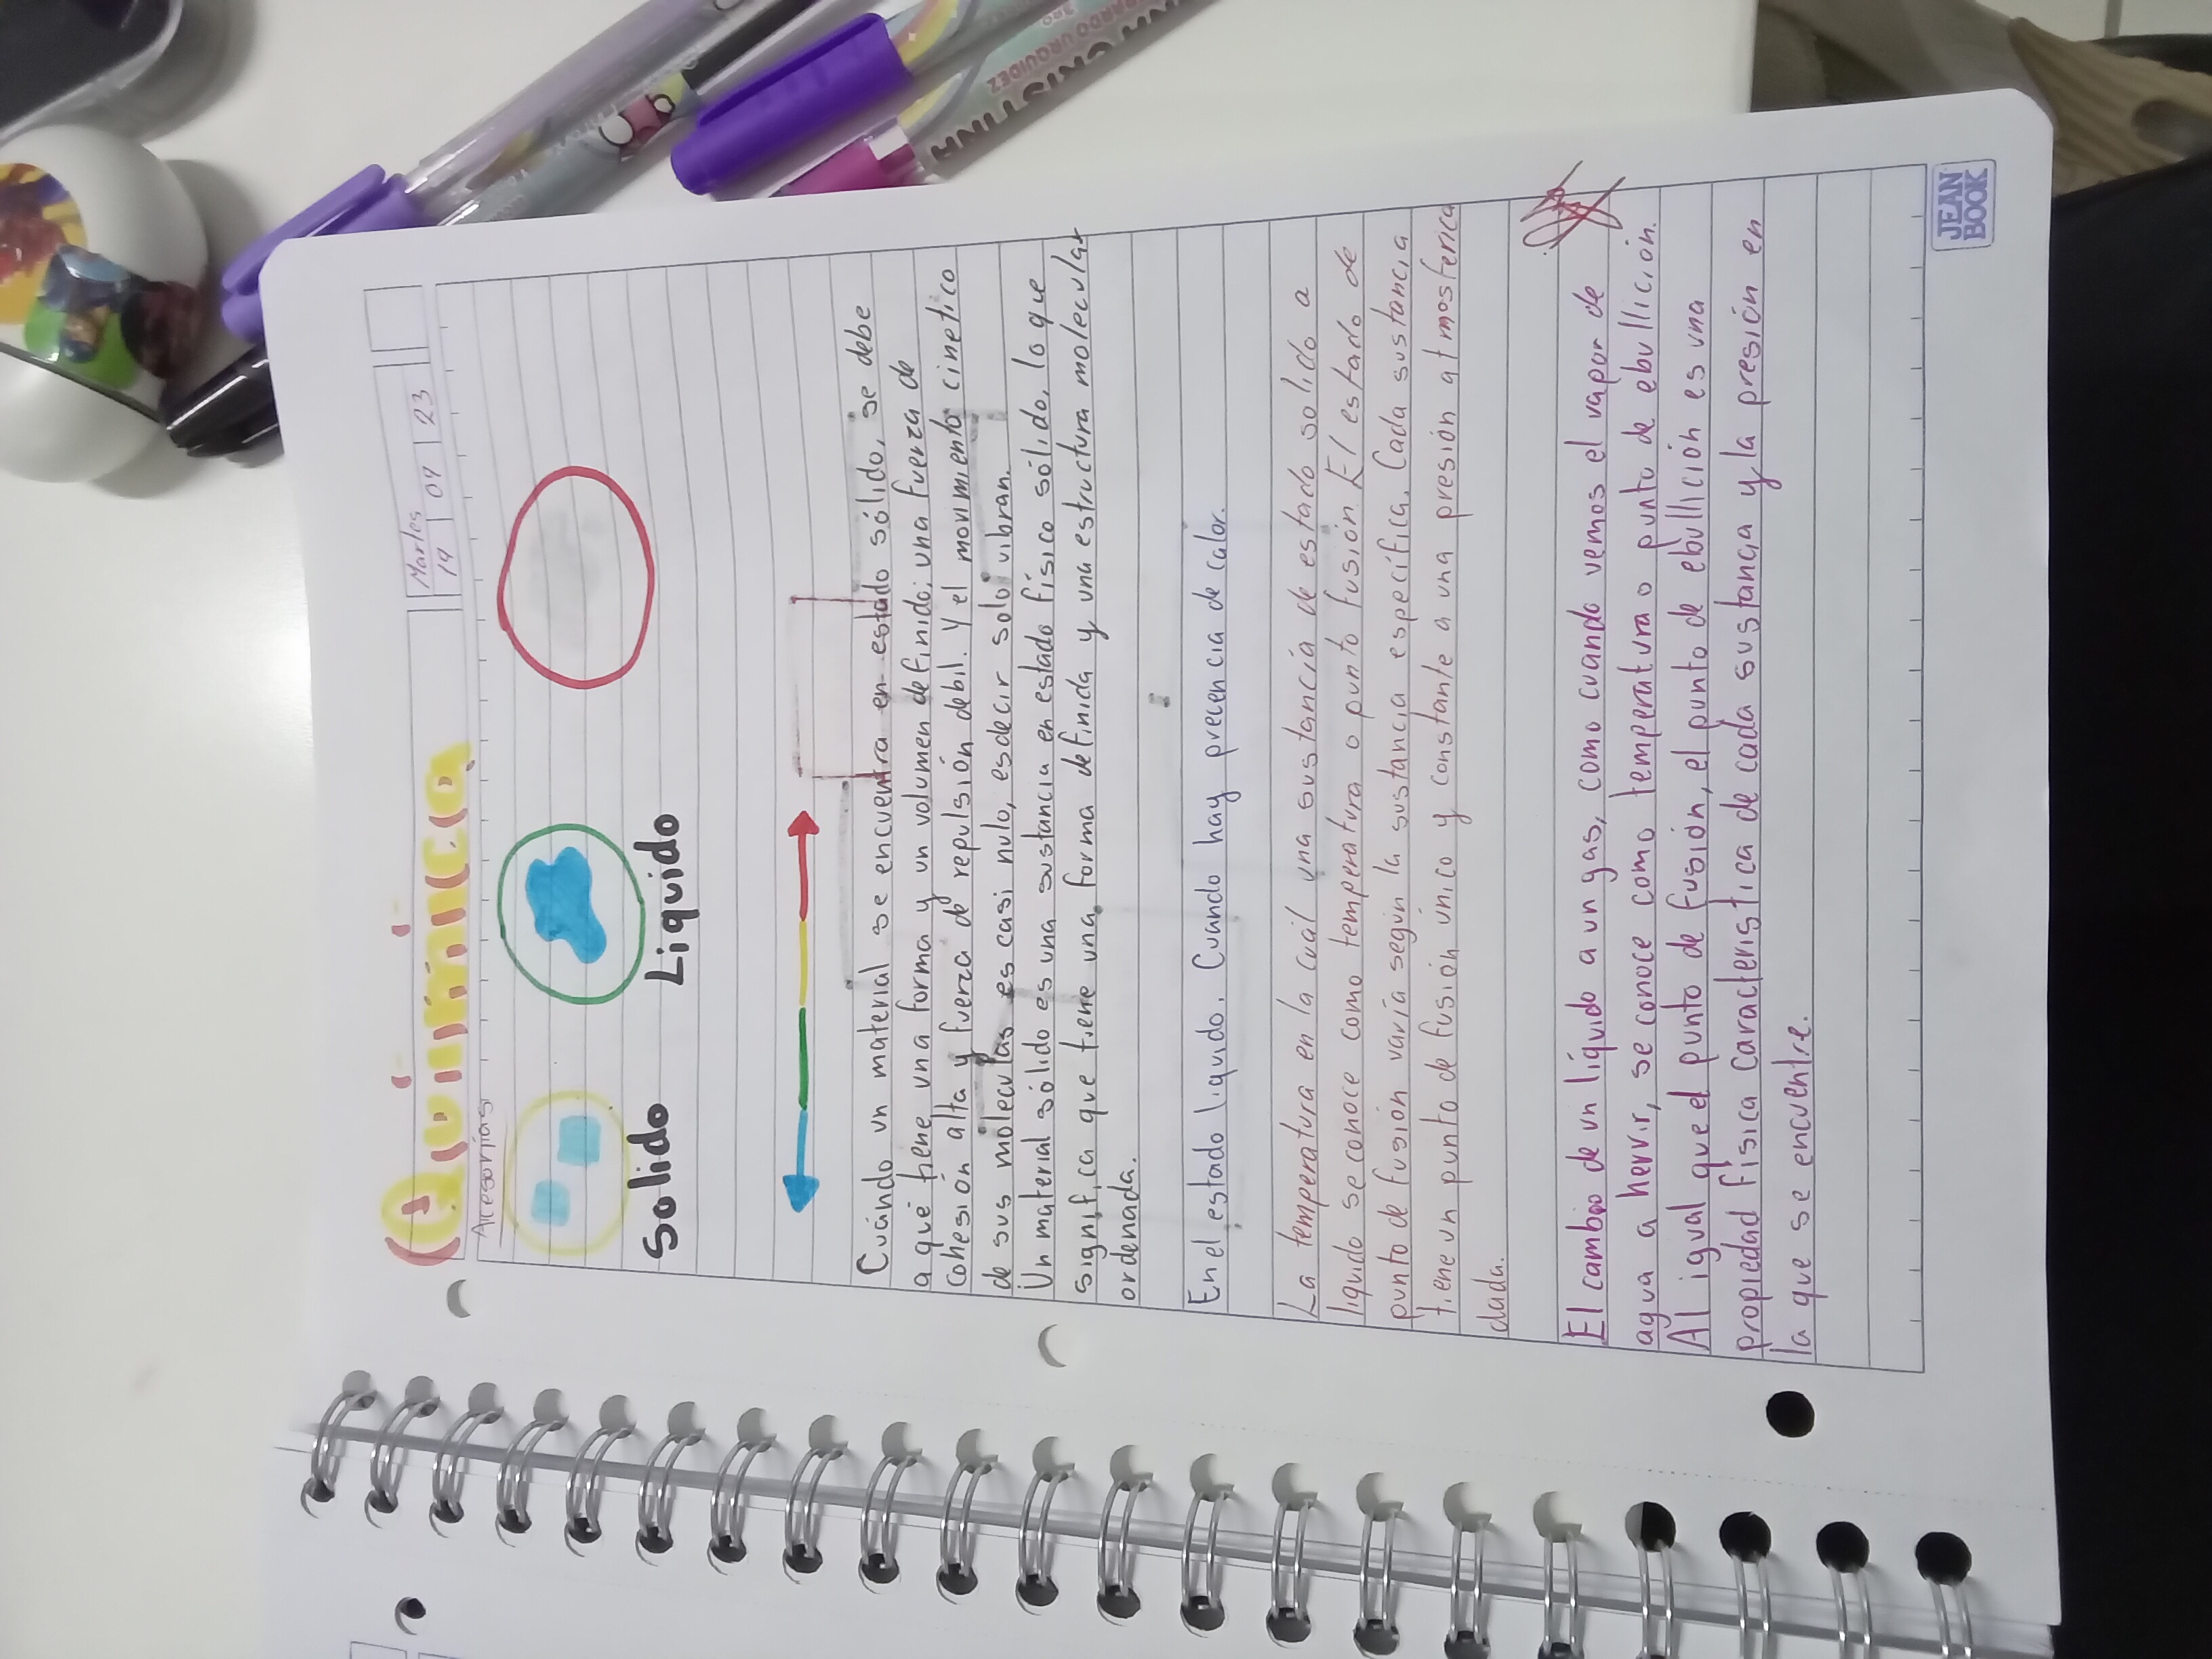 Química
Martes
19 09 23
Accesorías
Solido
Liquido
Cuándo un material se encuentra en estado sólido, se debe
a qué tiene una forma y un volumen definido; una fuerza de
cohesión alta y fuerza de repulsión debil. y el movimiento cinetico
de sus moleculas es casi nulo, esdecir solo vibran.
Un material sólido es una sustancia en estado físico sólido, lo que
significa que tiene una forma definida y una estructura molecular
ordenada.
En el estado liquido. Cuando hay precencia de calor.
La temperatura en la cuál una sustancia de estado solido a
liquido se conoce como temperatura o punto fusión El estado de
punto de fusión varía según la sustancia específica. Cada sustancia
tiene un punto de fusión único y constante a una presión atmosferica
dada.
El cambio de un líquido a un gas, como cuando vemos el vapor de
agua a hervir, se conoce como temperatura o punto de ebullición.
Al igual que el punto de fusión, el punto de ebullición es una
propiedad física caracteristica de cada sustancia y la presión en
la que se encuentre.
JEAN
BOOK
CRISTINA
URQUIDEZ
3RO